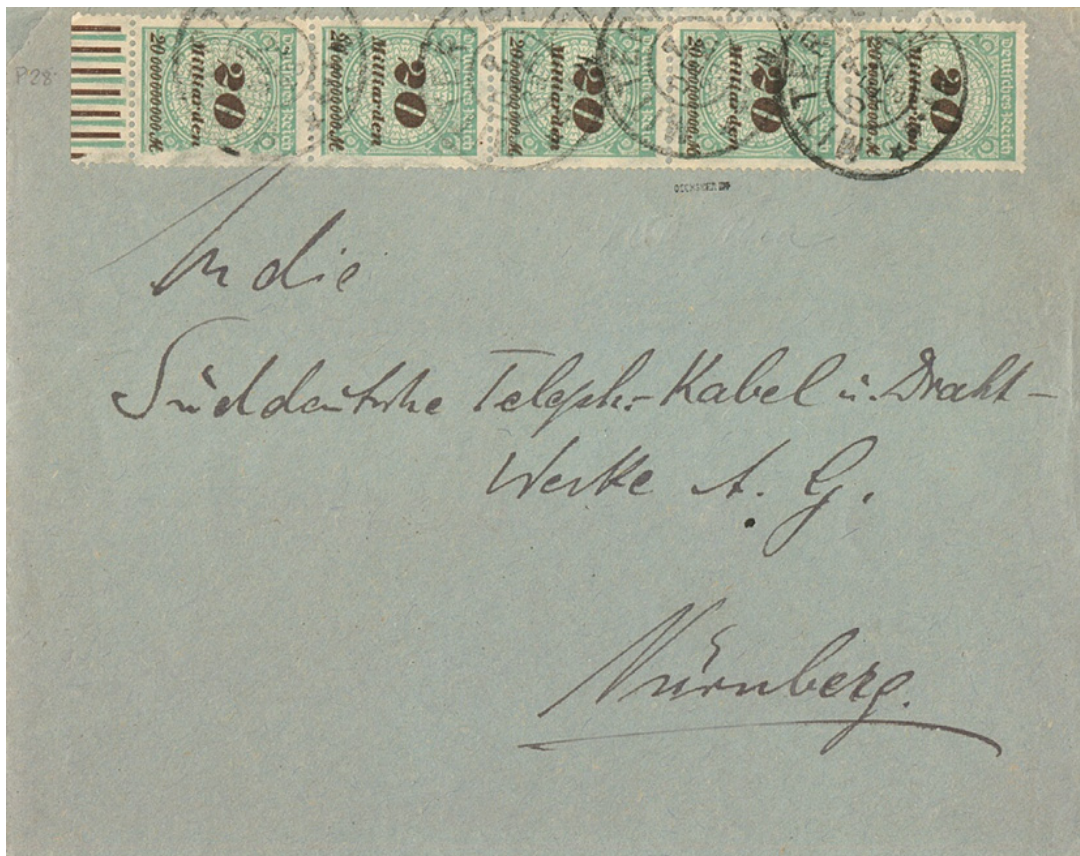 P28
Deutsches Reich
20
Milliarden
20 000 000 000 M
Deutsches Reich
20
Milliarden
20 000 000 000 M
Deutsches Reich
20
Milliarden
20 000 000 000 M
Deutsches Reich
20
Milliarden
20 000 000 000 M
Deutsches Reich
20
Milliarden
20 000 000 000 M
An die
Süddeutsche Teleph.-Kabel u. Draht-
Werke A. G.
Nürnberg.